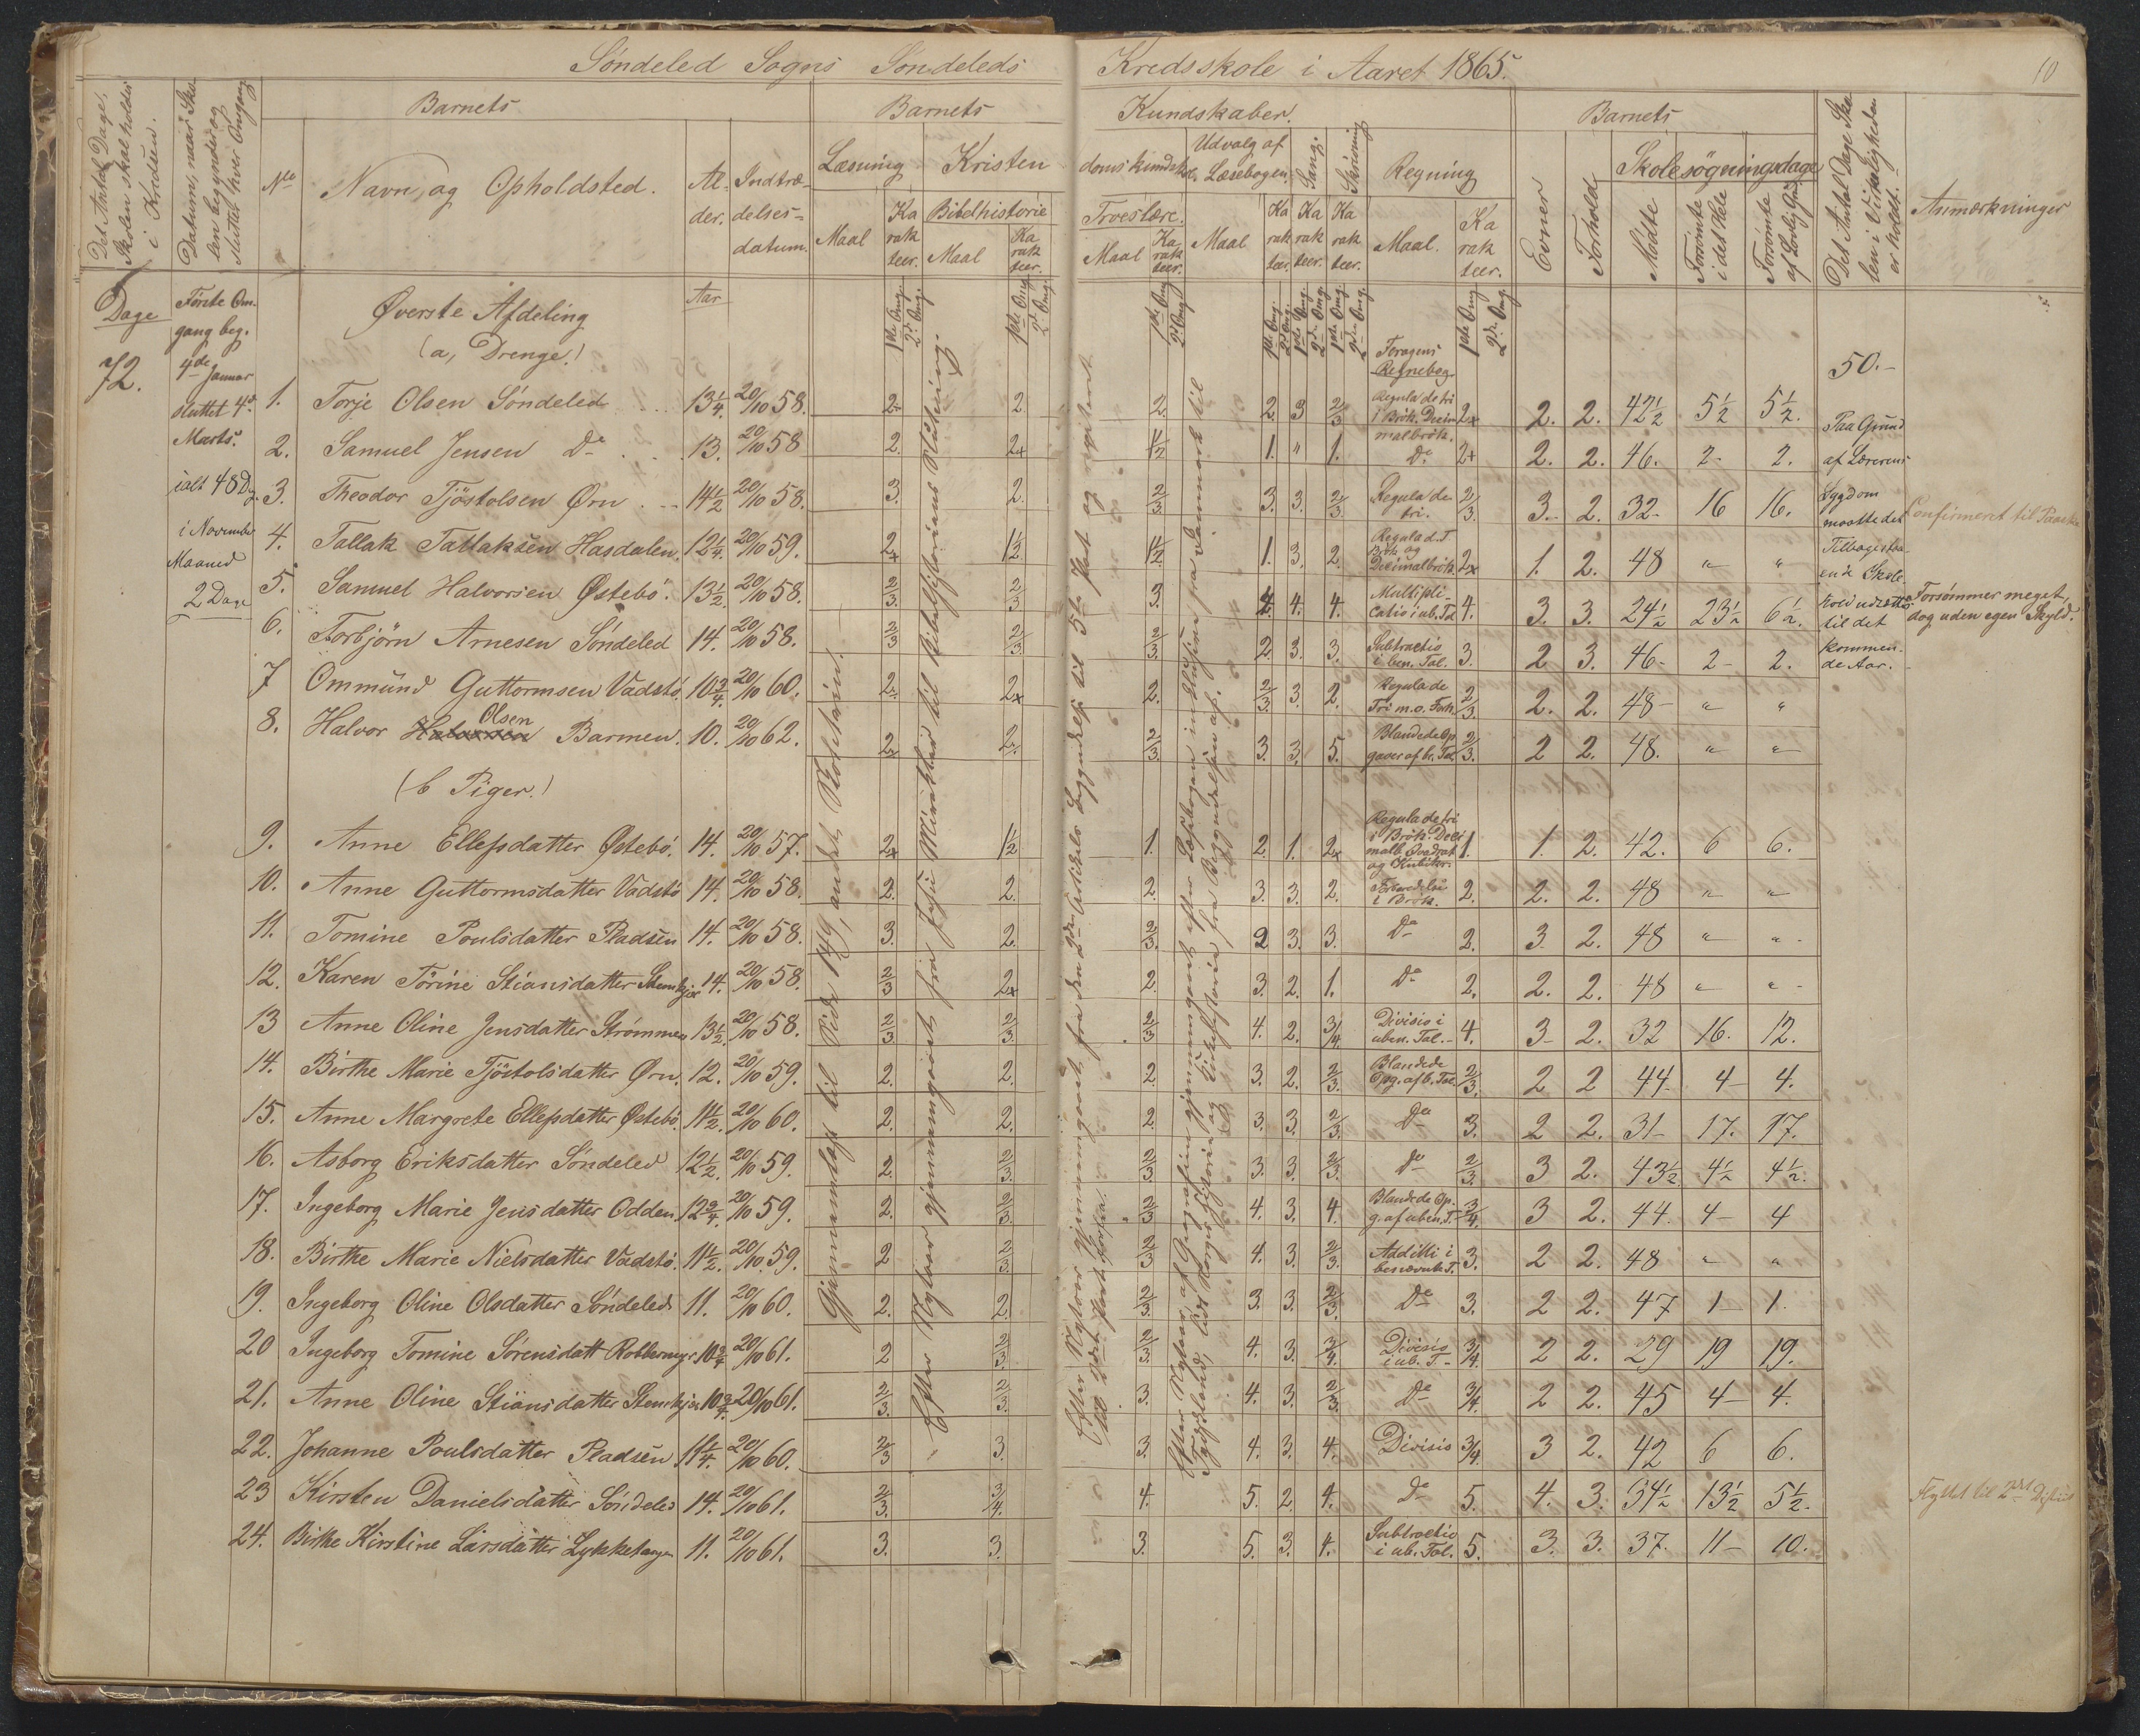 Søndeled Sogns Søndeleds Kredsskole i Aaret 1865.
10
Det Antal Dage, Skolen skal holdes i Kredsen.
Datum, naar Skolen begynder og slutter hver Omgang
Barnets
No
Navn og Opholdsted.
Alder.
Indtrædelsesdatum.
Barnets Kundskaber.
Læsning
Maal
Karakteer.
Kristendomskundskab
Bibelhistorie
Maal
Karakteer.
Troeslære.
Maal
Karakteer.
Udvalg af Læsebogen.
Maal
Karakteer.
Sang.
Karakteer.
Skrivning
Karakteer.
Regning
Maal.
Karakteer.
Barnets
Evner
Forhold
Skolesøgningsdage
Mødte
Forsømte i det Hele
Forsømte af Lovlig Grund
Det Antal Dage Skolen i Virkeligheden er holdt.
Anmærkninger
Dage
72.
Første Omgang beg.
4de Januar
sluttet 4de
Marts.
ialt 48 Dg.
i November
Maaned
2 Dage
Øverste Afdeling
Aar
(a, Drenge.)
1ste Omg. 2den Omg.
Foragens
Regnebog
50.-
1. Torje Olsen Søndeled 13¼ 20/10 58. 2. 2. 2. 2. 3 2/3 Regula de tri i Brøk. Decimalbrøk. 2x 2. 2. 42½ 5½ 5½.
2. Samuel Jensen Do 13. 20/10 58 2. 2x 1/2 1. " 1. Do 2x 2. 2. 46. 2- 2.
3. Theodor Tjøstolsen Ørn 14½ 20/10 58. 3. 2. 2/3 3. 3. 2/3 Regula de tri. 2/3 3. 2. 32- 16 16. Confirmeret til Paaske
4. Tallak Tallaksen Hasdalen 12¼ 20/10 59. 2x 1/2 1/2 1. 3. 2. Regula d. T. Brøk og Decimalbrøk 2x 1. 2. 48 " "
5. Samuel Halvorsen Østebø. 13½ 20/10 58. 2/3 2/3 3. 4. 4. 4. Multiplicatio i ub. Tal 4. 3. 3. 24½ 23½ 6½. Forsømmer meget, dog uden egen Skyld.
6. Torbjørn Arnesen Søndeled 14. 20/10 58. 2/3 2/3 2/3 2. 3. 3. Subtractio i ben. Tal. 3. 2 3. 46- 2- 2.
7 Ommund Guttormsen Vadstø 10¾ 20/10 60. 2. 2x 2. 2/3 3. 2. Regula de Tri m. o. Forh. 2/3 2. 2. 48- " "
8. Halvor Olsen Barmen. 10. 20/10 62. 2x 2. 2/3 3. 3. 5. Blandede Opgaver af be. Tal. 2/3 2 2. 48. " "
Paa Grund
af Lærerens
Sygdom
maatte det
Tilbagestaaende Skole-
hold udsættes
til det
kommende Aar.
(b Piger.)
9. Anne Ellefsdatter Østebø. 14. 20/10 57. 2x 1/2 1. 2. 1. 2x Regula de tri i Brøk. Decimalb. Qvadrat og Kubikr. 1. 1. 2. 42. 6 6.
10. Anne Guttormsdatter Vadstø 14. 20/10 58. 2. 2. 2. 3. 3. 2. i Brøk. 2. 2. 2. 48 " "
11. Tomine Poulsdatter Pladsen 14. 20/10 58. 3. 2. 2/3 2 3. 3. Do 2. 3. 2. 48 " "
12. Karen Torine Stiansdatter 14. 20/10 58. 2/3 2x 2. 3. 2. 1. Do 2. 2. 2. 48 " "
13 Anne Oline Jensdatter Strømmen 13½ 20/10 58. 2/3 2/3 2/3 4. 2. 3/4 Divisio i uben. Tal. 4. 3- 2. 32 16. 12.
14. Birthe Marie Tjøstolsdatter Ørn. 12. 20/10 59. 2. 2. 2. 3. 2. 2/3 Blandede Opg. af b. Tal 2/3 2 2 44 4- 4.
15. Anne Margrete Ellefsdatter Østebø. 11½ 20/10 60. 2. 2. 2. 3. 3. 2/3 Do 3. 2 2. 31- 17. 17.
16. Asborg Eriksdatter Søndeled 12½ 20/10 59. 2. 2/3 2/3 3. 3. 2/3 Do 2/3 3 2. 43½ 4½ 4½.
17. Ingeborg Marie Jensdatter Odden 12¾ 20/10 59. 2. 2/3 2/3 4. 3. 4. Blandede Opg. af uben. T. 3/4 3 2. 44. 4- 4
18. Birthe Marie Nielsdatter Vadstø. 11½ 20/10 59. 2 2/3 2/3 4. 3. 2/3 Additi i benævnte T. 3. 2 2. 48 " "
19. Ingeborg Oline Olsdatter Søndeled 11. 20/10 60. 2. 2. 2/3 3. 3. 2/3 Do 3. 2 2. 47 1- 1.
20 Ingeborg Tomine Sørensdatt Robbermyr 10¾ 20/10 61. 2 2/3 2/3 4. 3. 3/4 Divisio i ub. T. 3/4 2 2. 29 19 19.
21. Anne Oline Stiansdatter 10¾ 20/10 61. 2/3 2/3 3. 4. 3. 2/3 Do 3/4 2 2. 45 4- 4.
22. Johanne Poulsdatter Pladsen 11¼ 20/10 60. 2/3 3. 3. 4. 3. 4. Divisio 3/4 3 2. 42 6 6.
23 Kirsten Danielsdatter Søndeled 14. 20/10 61. 2/3 3/4 4. 5. 2. 4. Do 5. 4. 3. 34½ 13½ 5½. Flyttet til 2det District
24. Birthe Kirstine Larsdatter Lykketangen 11. 20/10 61. 3. 3. 3. 5. 3. 4. Subtractio i ub. Tal. 5. 3. 3. 37. 11- 10.
Gjennemlæst til Side 149, andet Skoletrin.
Efter Nytaar gjennemgaaet fra Jesu Mirakler til Bibelhistoriens Slutning.
Efter Nytaar gjennemgaaet fra den 2den Artikels Begyndelse til 5te Part og repeteret